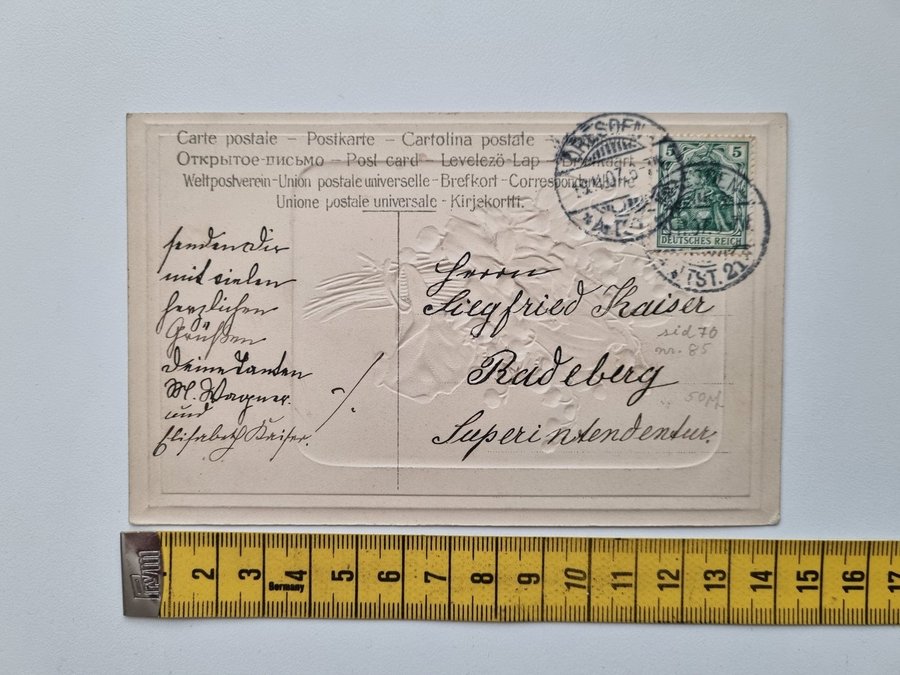 Carte postale – Postkarte – Cartolina postale
Открытое-письмо – Post card – Levelezö-Lap – Briefkaart
Weltpostverein-Union postale universelle-Brefkort-Correspondenzkarte
Unione postale universale - Kirjekortti.
DRESDEN
5 5
DEUTSCHES REICH
TST. 21
senden Dir
mit vielen
herzlichen
Grüßen
Deine Tanten
M. Wagner.
und
Elisabeth Kaiser.
Herrn
Siegfried Kaiser
Radeberg
Superintendentur.
sid 70
nr. 85
50
2 3 4 5 6 7 8 9 10 11 12 13 14 15 16 17
Germany